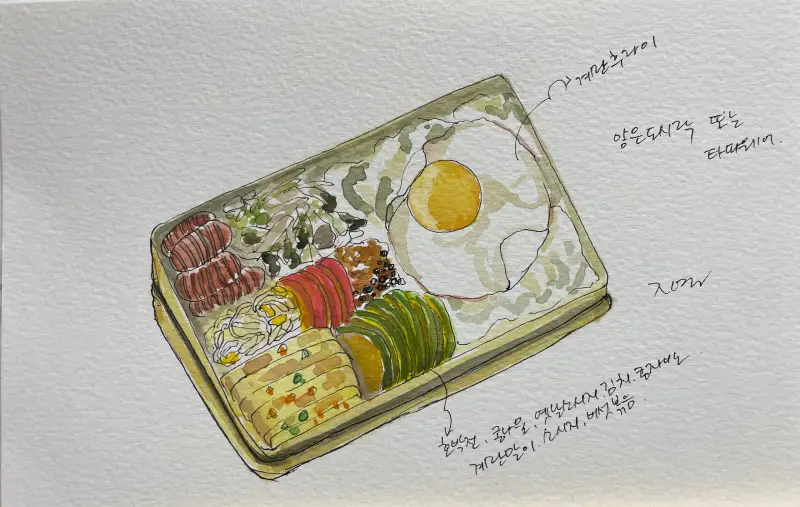 계란후라이
양은도시락 또는
타파웨어.
호박전, 콩나물, 옛날소시지, 김치, 콩자반
계란말이, 소시지, 버섯볶음.